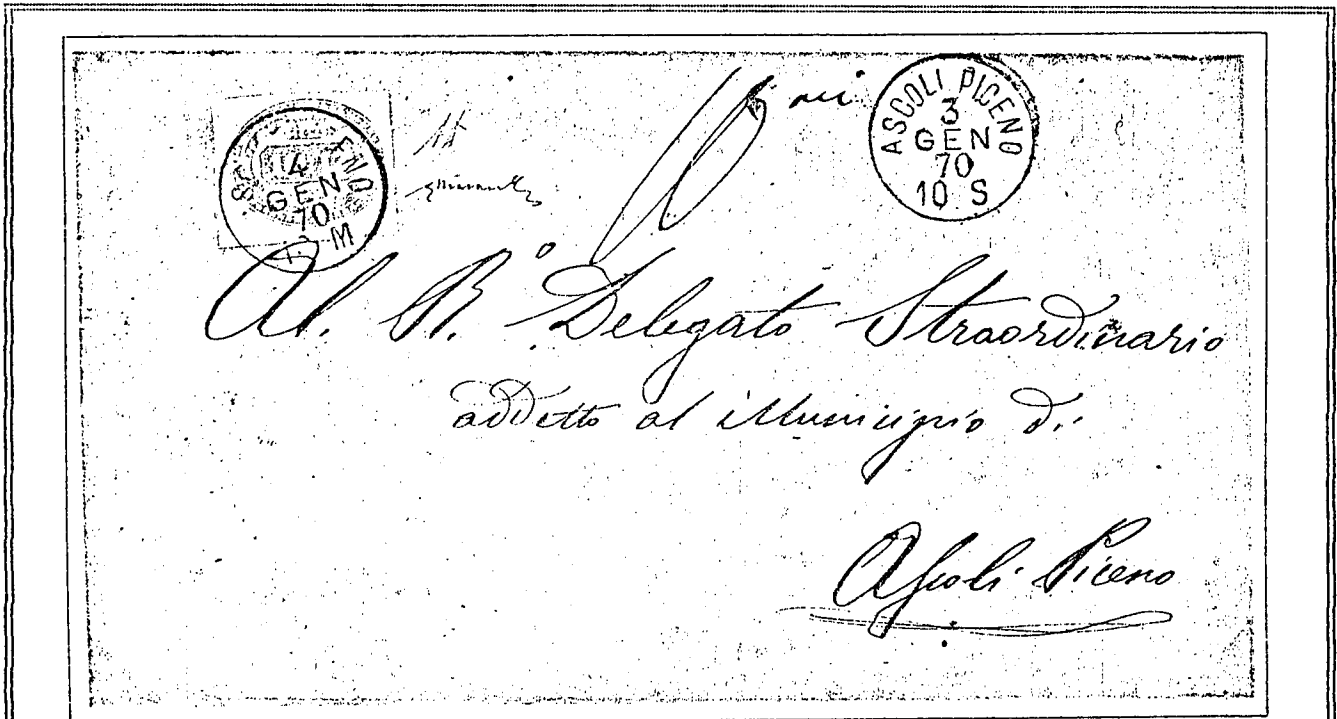 ASCOLI PICENO
3
GEN
70
10 S
4
GEN
70
M
Al R.º Delegato Straordinario
addetto al Municipio di
Ascoli Piceno